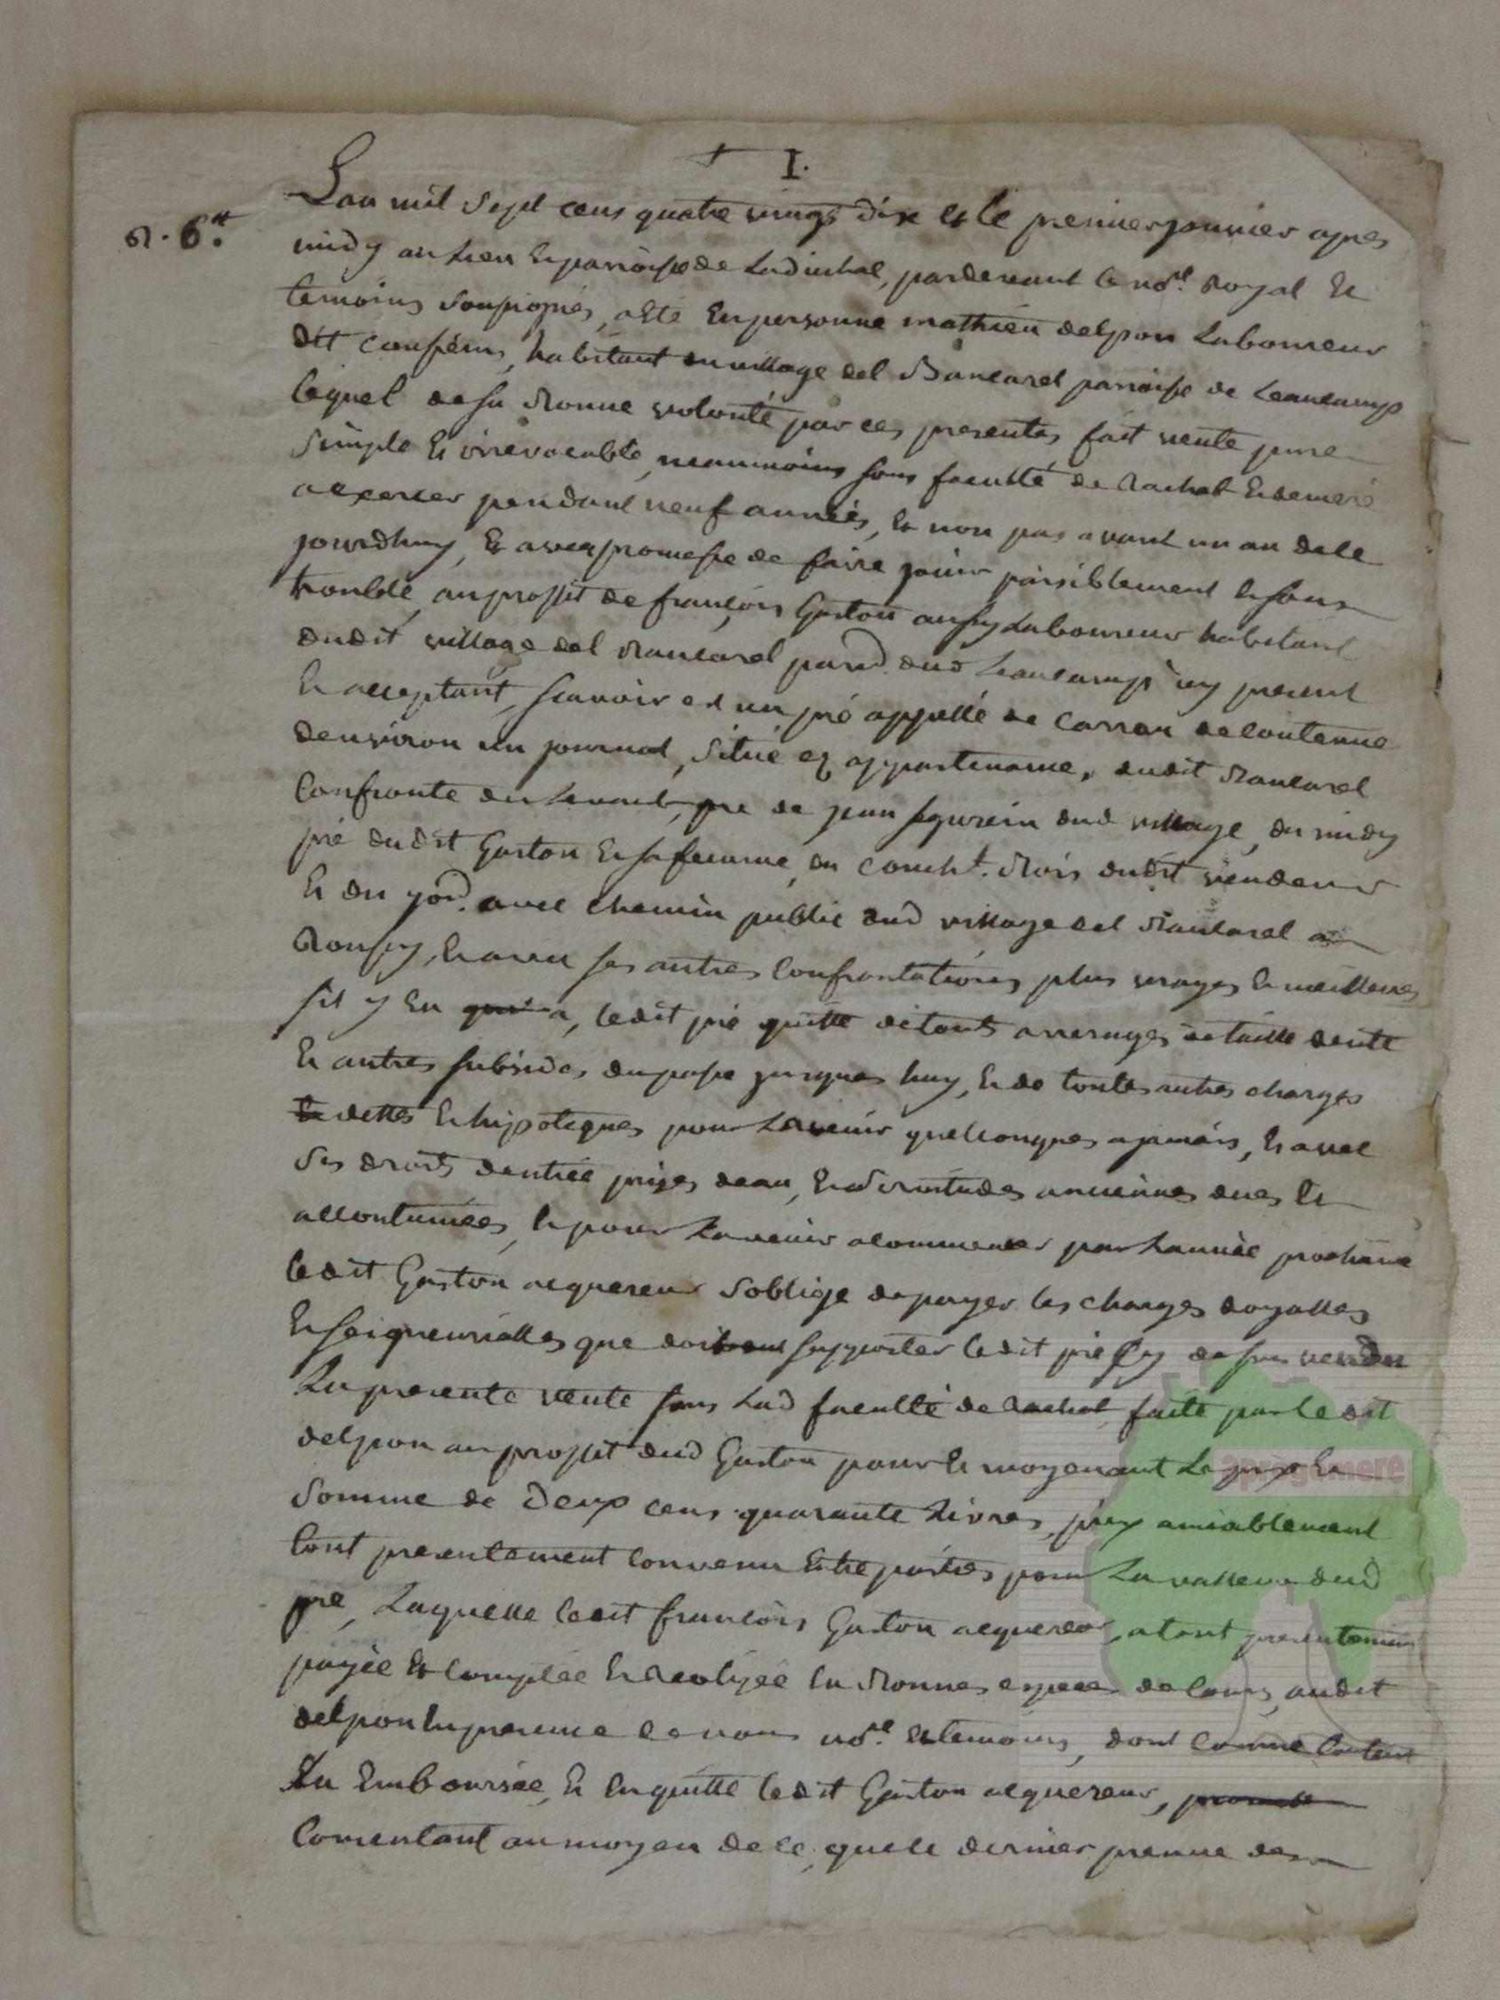 I.
R. 6.tt
Lan mil sept cens quatre vings dix et le premier janvier apres
midy au lieu et parroisse de Ladinhac, pardevant le nore. royal et
temoins soussignés, a eté en personne mathieu delpon laboureur
dit habitant au village del Bancarel parroisse de Leaucamp
lequel de sa bonne volonté par ces presentes, fait vente pure
simple et irrevocable, neanmoins sous faculté de rachat et remeré
a exercer pendant neuf années, et non pas avant un an de ce
jourdhuy, et avec promesse de faire jouir paisiblement et sans
trouble, au proffit de françois Gaston aussy laboureur habitant
dudit village del Bancarel parr. dud Leaucamp icy present
et acceptant, scavoir est un pré appellé de de contenue
denviron un journal, situé ez appartenances dudit Bancarel
Confronte du levant, pre de jean dud village, du midy
pré dudit Gaston et sa femme, du couch.t bois dudit vendeur
et du nord. avec chemin public dud village del Bancarel a
et avec ses autres confrontations plus vrayes et meilleures
sil y en a, ledit pré quitte de touts arrerages de taille rente
et autres subsides du passé jusques huy, et de toutes autres charges
dettes et hipoteques pour lavenir quelconques a jamais, et avec
ses droits dentrée prises deau, et servitudes anciennes dues et
accoutumées, et pour lavenir a commencer par lannée prochaine
ledit Gaston acquereur soblige de payer les charges royalles
et seigneurialles que doit supporter ledit pré cy dessus vendu
La presente vente sous lad faculté de rachat faite par ledit
delpon au proffit dud Gaston pour et moyenant le prix et
somme de deux cens quarante livres, prix amiablement
tout presentement convenu entre parties pour la valleur dud
pré, Laquelle ledit françois Gaston acquereur, a tout presentement
payée et comptée et realizée en bonnes especes de cours, audit
delpon en presence de nous nore. et temoins, dont comme content
La Emboursée, et en quitte ledit Gaston acquereur,
Consentant au moyen de ce, que ce dernier prenne des
approgemere